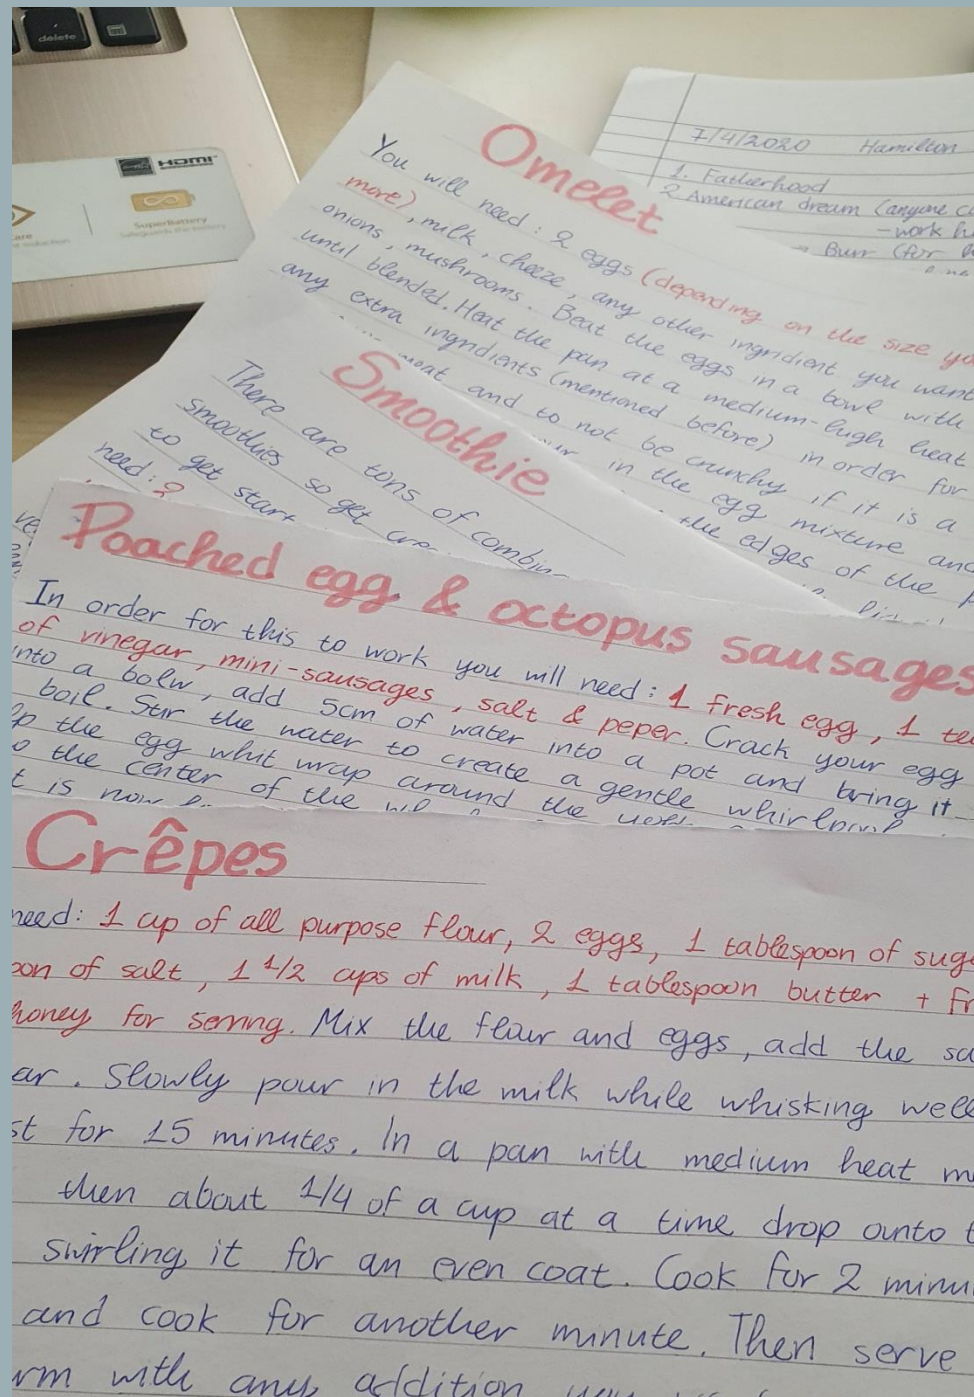 delete
HDMI
SuperBattery
7/4/2020 Hamilton
1. Fatherhood
2 American dream (anyone c
- work h
→ Burr (for
Omelet
You will need: 2 eggs (depending on the size yo
more), milk, cheeze, any other ingridient you want
onions, mushrooms. Beat the eggs in a bowl with
until blended. Heat the pan at a medium-high heat
any extra ingridients (mentioned before) in order for
meat and to not be crunchy if it is a
in the egg mixture and
the edges of the p
Smoothie
There are tons of combin
smoothies so get crea
to get start
need: 2
Poached egg & octopus sausages
In order for this to work you will need: 1 fresh egg, 1 tea
of vinegar, mini-sausages, salt & peper. Crack your egg
into a bolw, add 5cm of water into a pot and bring it
boil. Stir the water to create a gentle whirlpool
lp the egg whit wrap around the yolk
o the center of the
t is now
Crêpes
need: 1 cup of all purpose flour, 2 eggs, 1 tablespoon of suga
oon of salt, 1 1/2 cups of milk, 1 tablespoon butter + fr
honey for serving. Mix the flour and eggs, add the sa
ar. Slowly pour in the milk while whisking well
st for 15 minutes. In a pan with medium heat m
then about 1/4 of a cup at a time drop onto t
swirling it for an even coat. Cook for 2 minu
and cook for another minute. Then serve
arm with any addition you